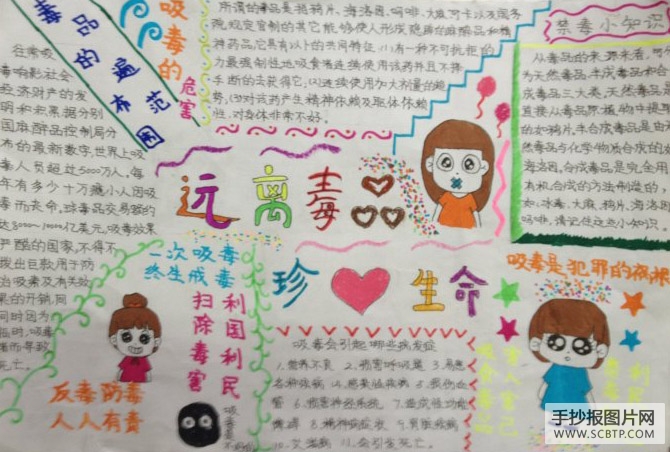 毒品的遍布范围
在常吸
毒响影社会
经济财产的发
明和老黑据分别
国麻醉品控制局分
布的最新数字,世界上吸
毒人员超过5000万人,每
年有多少十万藏小人因吸
毒而丧命,球毒品交易额约
达8000~10000亿美元,吸毒效果
严酷的国家,不得不
拨出巨款用于防
治吸毒及有关效
果的开销,网
同时因为
临时,吸毒
者而导致
死亡。
吸毒的
危害
所谓的毒品是指鸦片、海洛因、吗啡、大麻、可卡以及国务
院规定管制的其它能够使人形成隐瘾的麻醉品和精
神药品,它具有以下的共同特征:(1)有一种不可抗拒的
力最强制性地吸食者连续使用该药并且不择
手断的去获得它,(2)连续使用加大剂量的趋
势,(3)对该药产生精神依赖及躯体依赖
性,对身体非常不好。
禁毒小知识
从毒品的来源来看,
为天然毒品、半成毒品和合
成毒品三大类,天然毒品是
直接从毒品原植物中提取
的如鸦片,半合成毒品是由
然毒品与化学物质合成的如
海洛因,合成毒品是完全用
有机合成的方法制造的
如,冰毒、大麻、鸦片、海洛因
吗啡,请记住这些小知识。
远离毒品
珍♥生命
一次吸毒
终生戒毒
利国利民
扫除毒害
反毒防毒
人人有责
吸毒会引起哪些病发症
1.营养不良 2.损害呼吸道 3.易患
各种疾病 4.感染性疾病 5.损伤血
管 6.损害神经系统 7.造成性功能
障碍 8.精神病症状 9.肾脏疾病
10.交游病 11.会引舍死亡。
吸毒是犯罪的祸根
害人害己
吸食毒品
利民
手抄报图片网
WWW.SCBTP.COM